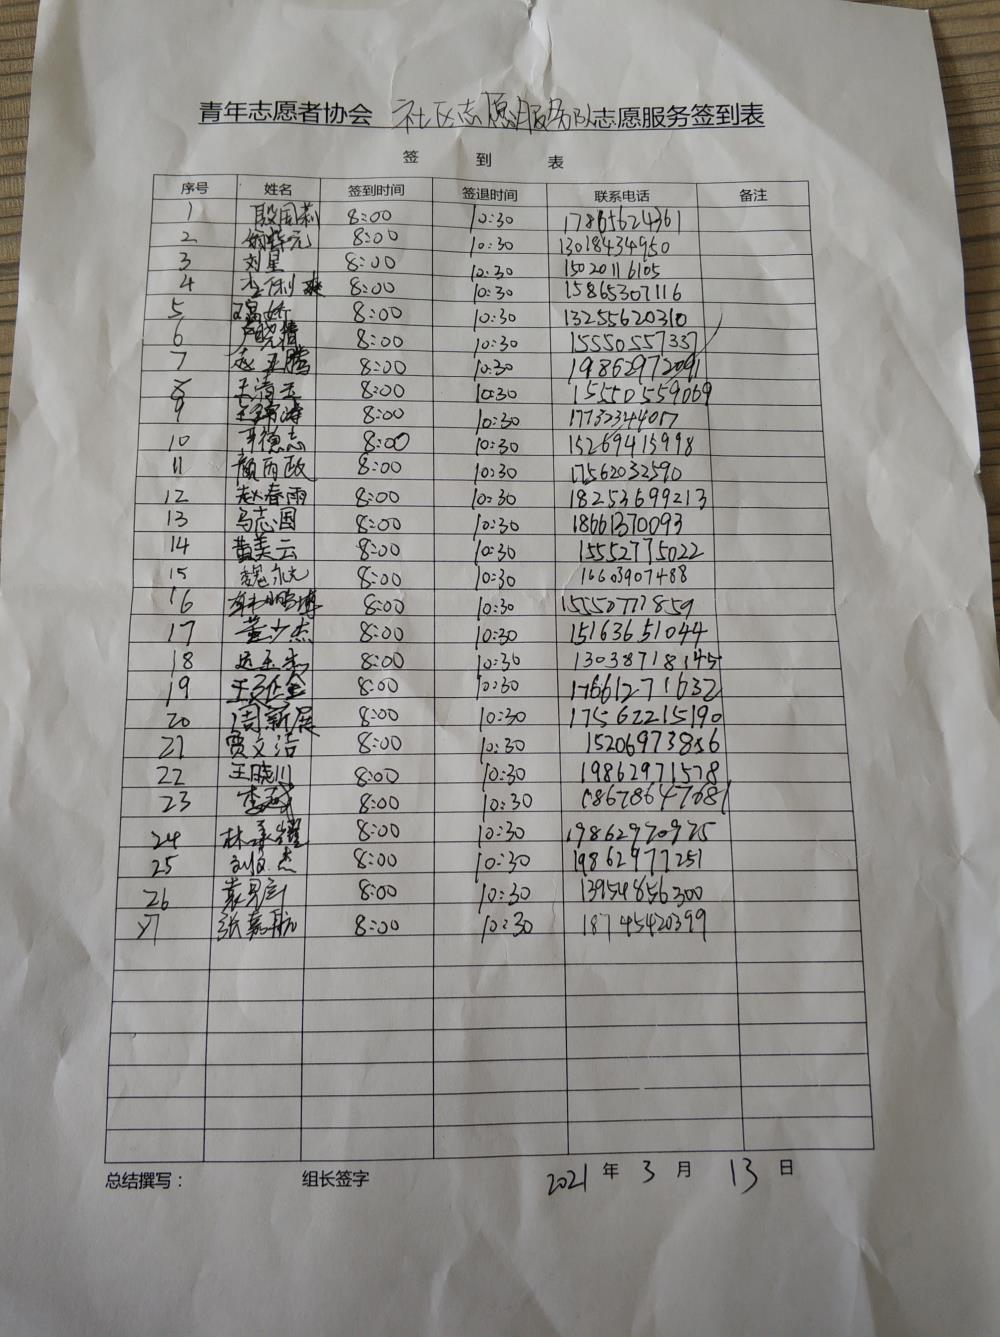 青年志愿者协会 社区志愿服务队志愿服务签到表
签 到 表
序号 姓名 签到时间 签退时间 联系电话 备注
1 殷周莉 8:00 10:30 17865624361
2 8:00 10:30 13018434950
3 刘星 8:00 10:30 15020116105
4 8:00 10:30 15865307116
5 8:00 10:30 13255620310
6 卢晓倩 8:00 10:30 15550557337
7 赵亚腾 8:00 10:30 19862972091
8 王清玉 8:00 10:30 15550559069
9 8:00 10:30 17732344017
10 8:00 10:30 15269415998
11 颜丙政 8:00 10:30 17562032590
12 赵春雨 8:00 10:30 18253699213
13 马志国 8:00 10:30 18661370093
14 黄美云 8:00 10:30 15552775022
15 魏永元 8:00 10:30 16603907488
16 韩鹏博 8:00 10:30 15550711859
17 董少杰 8:00 10:30 15163651044
18 8:00 10:30 13038718145
19 8:00 10:30 17661271632
20 周新展 8:00 10:30 17562215190
21 贾文洁 8:00 10:30 15206973856
22 王晓川 8:00 10:30 19862971578
23 8:00 10:30 18678647081
24 林承耀 8:00 10:30 19862970975
25 8:00 10:30 19862977251
26 8:00 10:30 13954856300
27 张嘉航 8:00 10:30 18745420399
总结撰写： 组长签字 2021 年 3 月 13 日